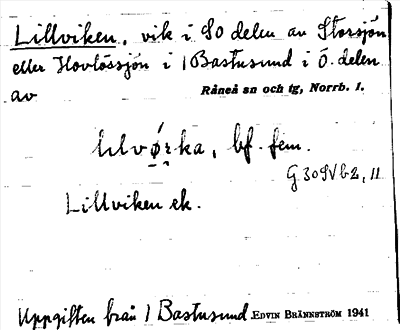 Lillviken, vik i SO delen av Storsjön
eller Hovlössjön i 1 Bastusund i Ö. delen
av Råneå sn och tg, Norrb. l.
bf. fem.
G 309
Lillviken ek.
Uppgiften från 1 Bastusund. EDVIN BRÄNNSTRÖM 1941